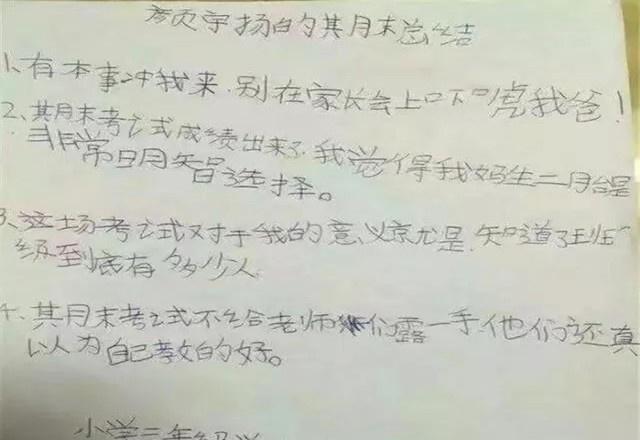 彦页宇扬的其月末总结
1、有本事冲我来.别在家长会上吓唬我爸!
2、其月末考试成绩出来了.我觉得我妈生二月台是
非常日月智选择。
3、这场考试对于我的意义京尤是.知道了班
级到底有多少人
4、其月末考试不给老师们露一手.他们还真
以人为自己教的好。
小学三年级学